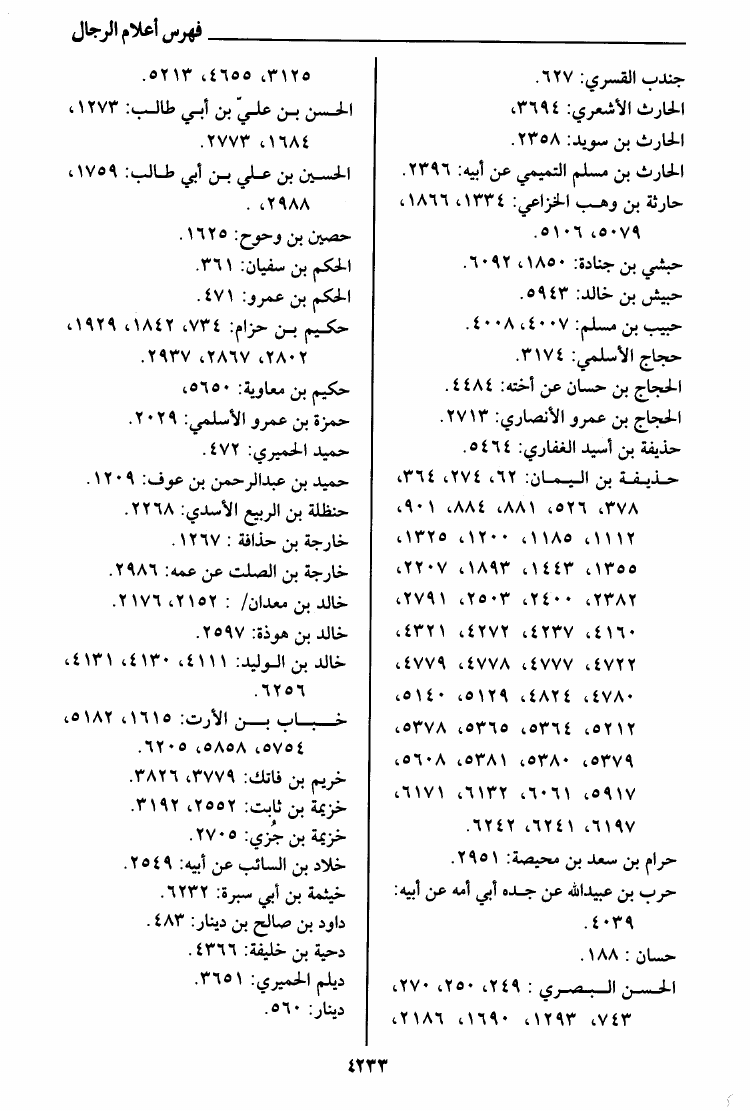 فهرس أعلام الرجال
جندب القسري: ٦٢٧.
الحارث الأشعري: ٣٦٩٤،
الحارث بن سويد: ٢٣٥٨.
الحارث بن مسلم التميمي عن أبيه: ٢٣٩٦.
حارثة بن وهب الخزاعي: ١٣٣٤، ١٨٦٦،
٥٠٧٩، ٥١٠٦.
حبشي بن جنادة: ١٨٥٠، ٦٠٩٢.
حبيش بن خالد: ٥٩٤٣.
حبيب بن مسلم: ٤٠٠٧، ٤٠٠٨.
حجاج الأسلمي: ٣١٧٤.
الحجاج بن حسان عن أخته: ٤٤٨٤.
الحجاج بن عمرو الأنصاري: ٢٧١٣.
حذيفة بن أسيد الغفاري: ٥٤٦٤.
حذيفة بن اليمان: ٦٢، ٢٧٤، ٣٦٤،
٣٧٨، ٥٢٦، ٨٨١، ٨٨٤، ٩٠١،
١١١٢، ١١٨٥، ١٢٠٠، ١٣٢٥،
١٣٥٥، ١٤٤٣، ١٨٩٣، ٢٢٠٧،
٢٣٨٢، ٢٤٠٠، ٢٥٠٣، ٢٧٩١،
٤١٦٠، ٤٢٣٧، ٤٢٧٢، ٤٣٢١،
٤٧٢٢، ٤٧٧٧، ٤٧٧٨، ٤٧٧٩،
٤٧٨٠، ٤٨٢٤، ٥١٢٩، ٥١٤٠،
٥٢١٢، ٥٣٦٤، ٥٣٦٥، ٥٣٧٨،
٥٣٧٩، ٥٣٨٠، ٥٣٨١، ٥٦٠٨،
٥٩١٧، ٦٠٦١، ٦١٣٢، ٦١٧١،
٦١٩٧، ٦٢٤١، ٦٢٤٢.
حرام بن سعد بن محيصة: ٢٩٥١.
حرب بن عبيدالله عن جده أبي أمه عن أبيه:
٤٠٣٩.
حسان : ١٨٨.
الحسن البصري : ٢٤٩، ٢٥٠، ٢٧٠،
٧٤٣، ١٢٩٣، ١٦٩٠، ٢١٨٦،
٣١٢٥، ٤٦٥٥، ٥٢١٣.
الحسن بن عليّ بن أبي طالب: ١٢٧٣،
١٦٨٤، ٢٧٧٣.
الحسين بن علي بن أبي طالب: ١٧٥٩،
٢٩٨٨، .
حصين بن وحوح: ١٦٢٥.
الحكم بن سفيان: ٣٦١.
الحكم بن عمرو: ٤٧١.
حكيم بن حزام: ٧٣٤، ١٨٤٢، ١٩٢٩،
٢٨٠٢، ٢٨٦٧، ٢٩٣٧.
حكيم بن معاوية: ٥٦٥٠،
حمزة بن عمرو الأسلمي: ٢٠٢٩.
حميد الحميري: ٤٧٢.
حميد بن عبدالرحمن بن عوف: ١٢٠٩.
حنظلة بن الربيع الأسدي: ٢٢٦٨.
خارجة بن حذافة : ١٢٦٧.
خارجة بن الصلت عن عمه: ٢٩٨٦.
خالد بن معدان/ : ٢١٥٢، ٢١٧٦.
خالد بن هوذة: ٢٥٩٧.
خالد بن الوليد: ٤١١١، ٤١٣٠، ٤١٣١،
٦٢٥٦.
خباب بن الأرت: ١٦١٥، ٥١٨٢،
٥٧٥٤، ٥٨٥٨، ٦٢٠٥.
خريم بن فاتك: ٣٧٧٩، ٣٨٢٦.
خزيمة بن ثابت: ٢٥٥٢، ٣١٩٢.
خزيمة بن جُزي: ٢٧٠٥.
خلاد بن السائب عن أبيه: ٢٥٤٩.
خيثمة بن أبي سبرة: ٦٢٣٢.
داود بن صالح بن دينار: ٤٨٣.
دحية بن خليفة: ٤٣٦٦.
ديلم الحميري: ٣٦٥١.
دينار: ٥٦٠.
٤٢٣٣